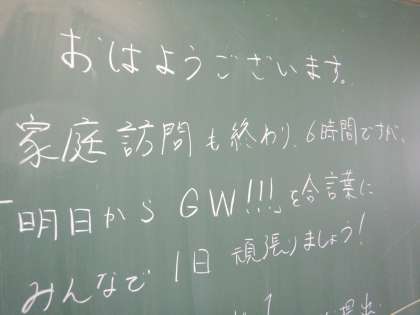 おはようございます。
家庭訪問も終わり、6時間ですが、
「明日から GW!!!」を合言葉に
みんなで 1日 頑張りましょう!